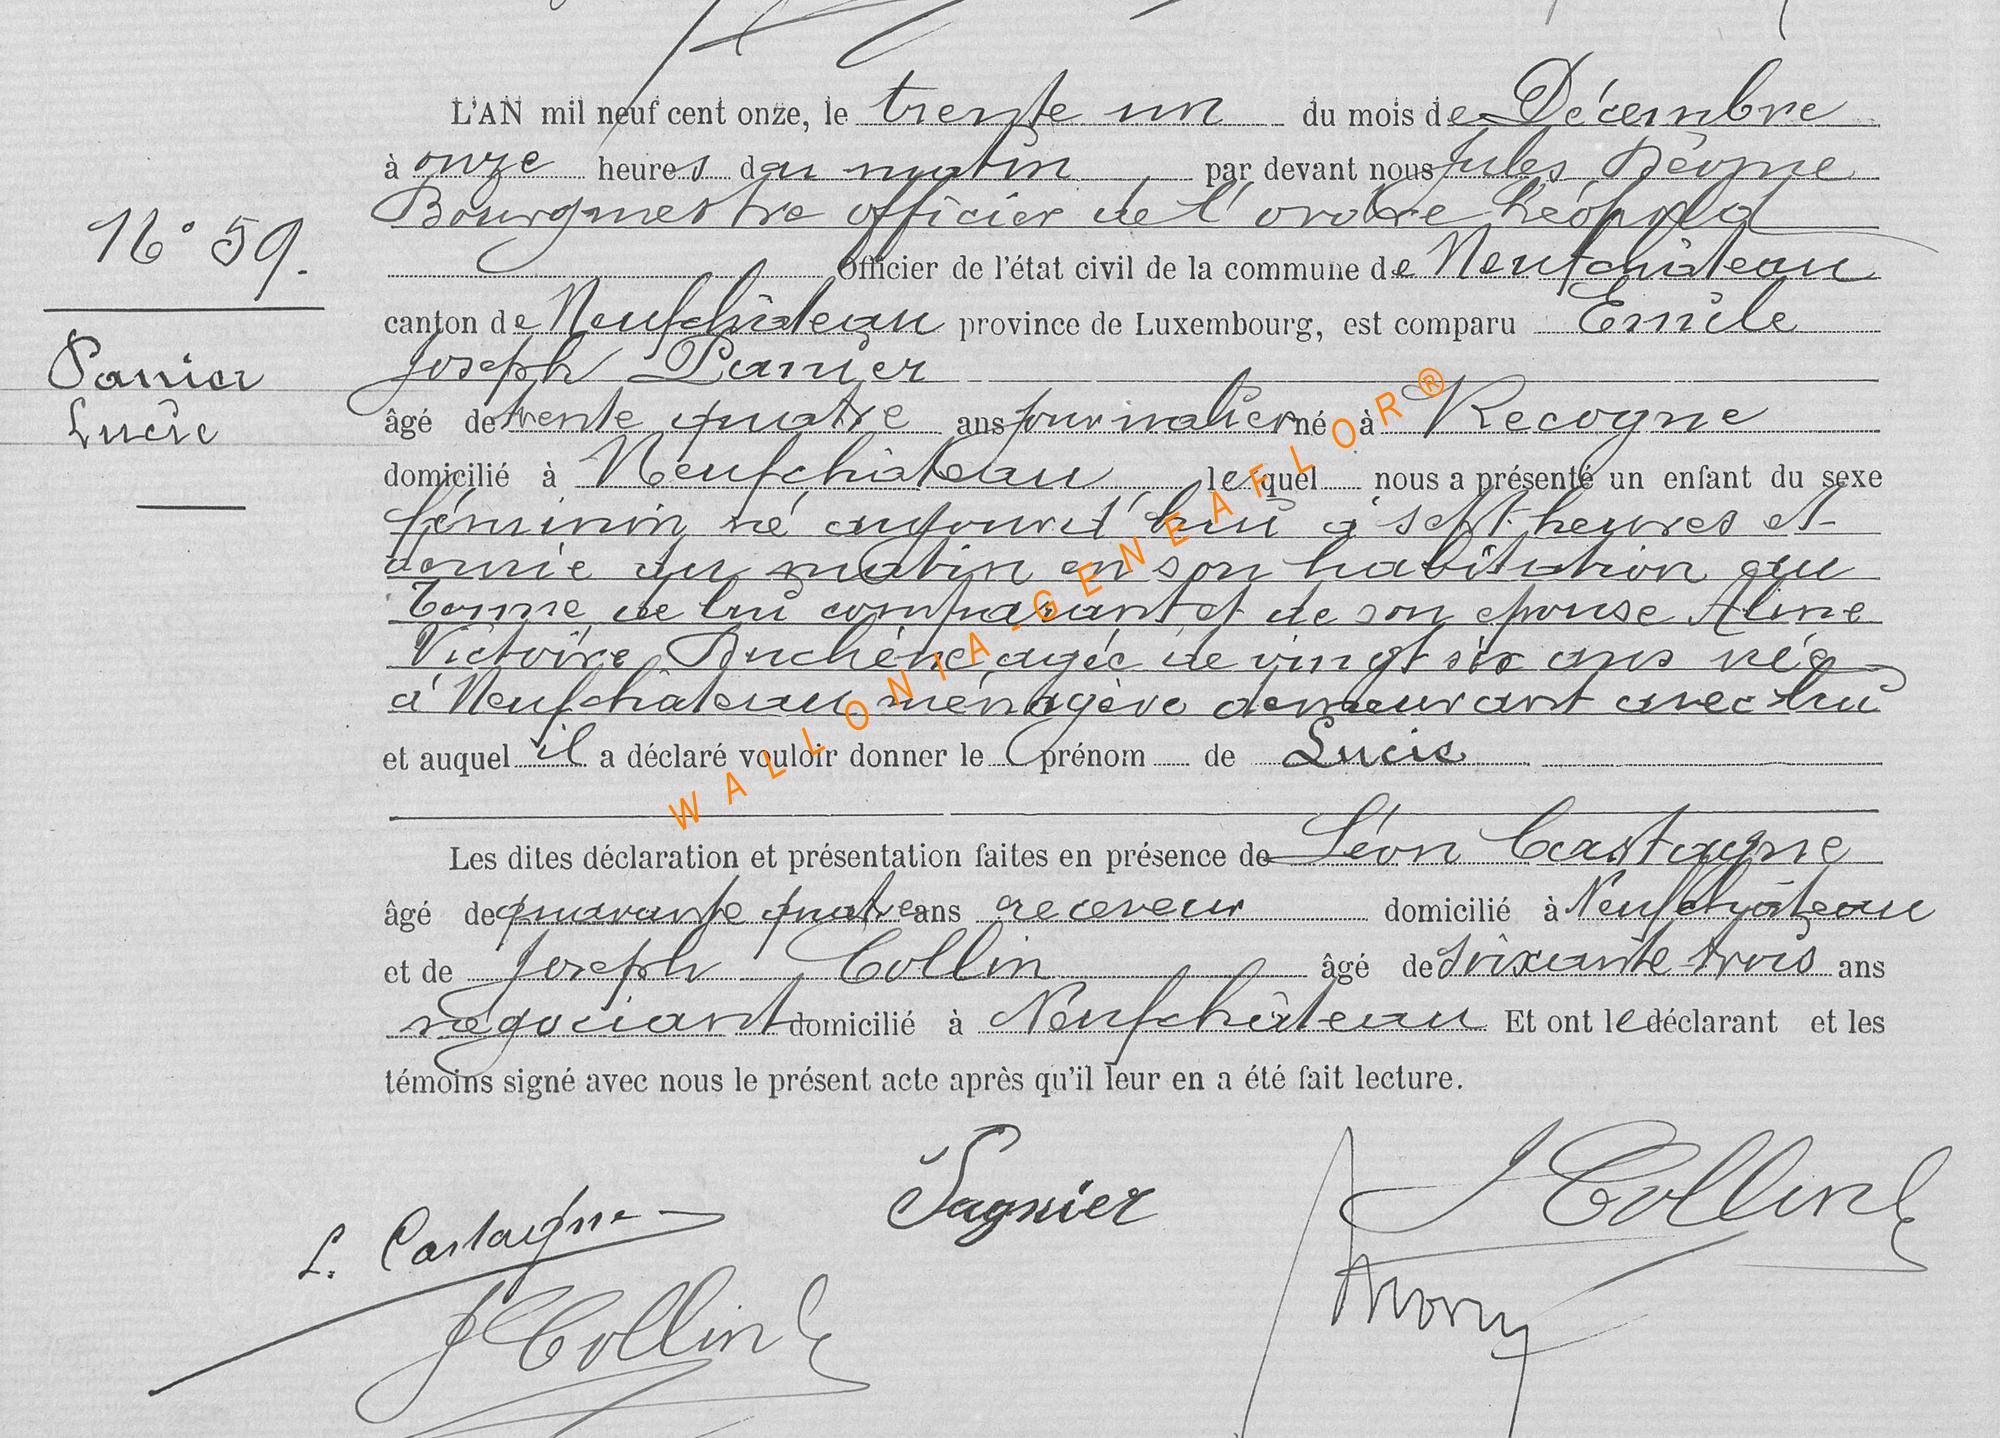 L'AN mil neuf cent onze, le trente un du mois de Décembre
à onze heures du matin par devant nous Jules
Bourgmestre officier de l'ordre Léopold
Officier de l'état civil de la commune de Neufchâteau
N° 59.
canton de Neufchâteau province de Luxembourg, est comparu Emile
Joseph Panier
Panier
Lucie
âgé de trente quatre ans journalier né à Recogne
domicilié à Neufchâteau lequel nous a présenté un enfant du sexe
féminin né aujourd'hui à sept heures et
demie du matin en son habitation au
Terme de lui comparant et de son épouse Aline
Victoire Duchêne agée de vingt six ans née
à Neufchateau ménagère demeurant avec lui
et auquel il a déclaré vouloir donner le prénom de Lucie
Les dites déclaration et présentation faites en présence de Léon Castagne
âgé de quarante quatre ans receveur domicilié à Neufchâteau
et de Joseph Collin âgé de soixante trois ans
négociant domicilié à Neufchâteau Et ont le déclarant et les
témoins signé avec nous le présent acte après qu'il leur en a été fait lecture.
WALLONIA-GENEAFLOR®
L. Castaigne
Pagnier
J Collin
J Collin